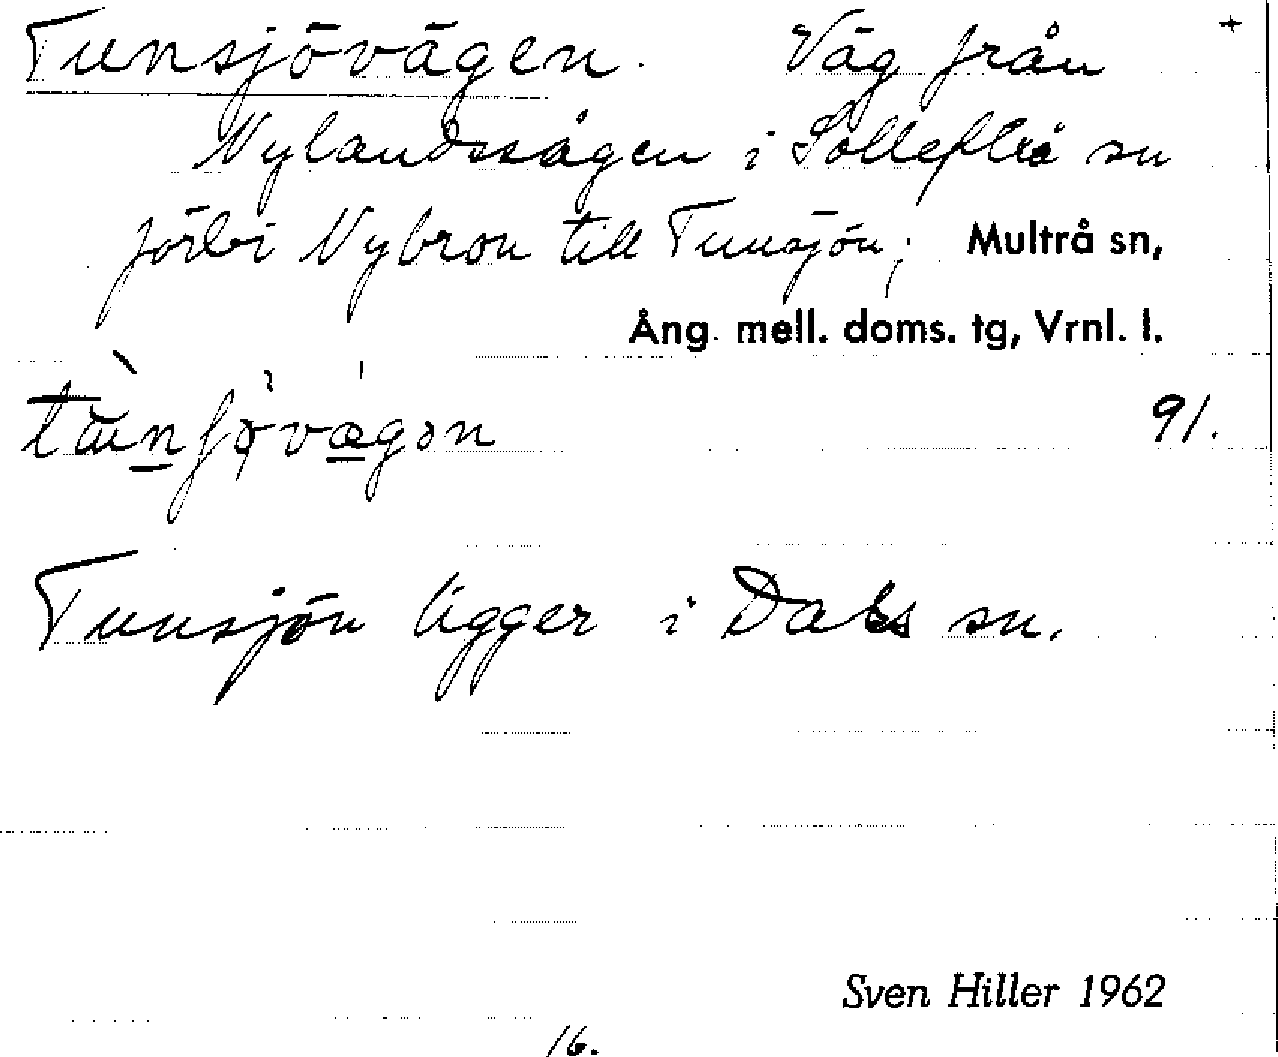 Tunsjövägen. Väg från +
Nylandssågen i Sollefteå sn
förbi Nybron till Tunsjön; Multrå sn,
Ång. mell. doms. tg, Vrnl. l.
91.
Tunsjön ligger i Dals sn.
Sven Hiller 1962
16.